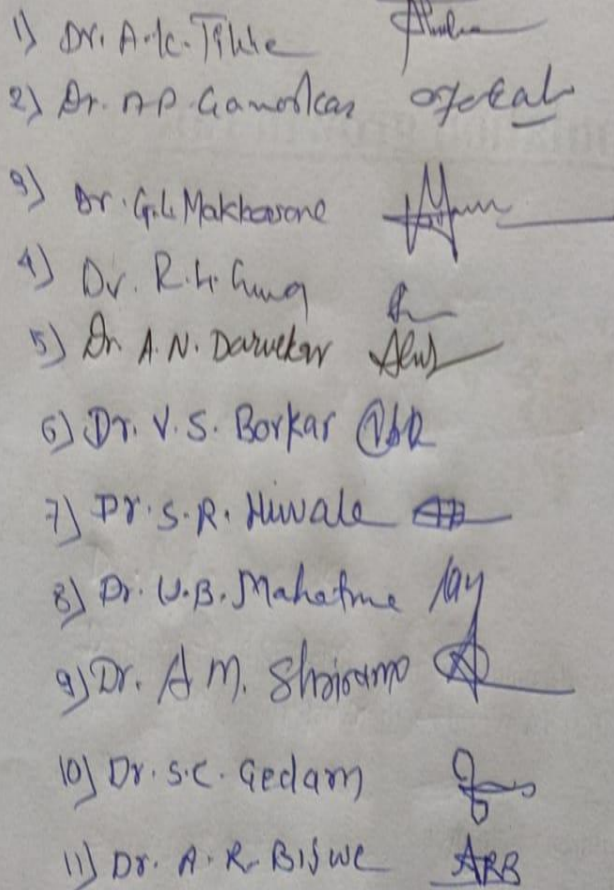 1) Dr. A.K. Tikle
2) Dr. A P. Gamorkar
3) Dr. G.L. Makhasane
4) Dr. R.L.
5) Dr. A.N. Darvekar
6) Dr. V.S. Borkar
7) Dr. S.R. Hiwale
8) Dr. U.B. Mahatme
9) Dr. A M. Shrirame
10) Dr. S.C. Gedam
11) Dr. A.R. Bijwe ARB